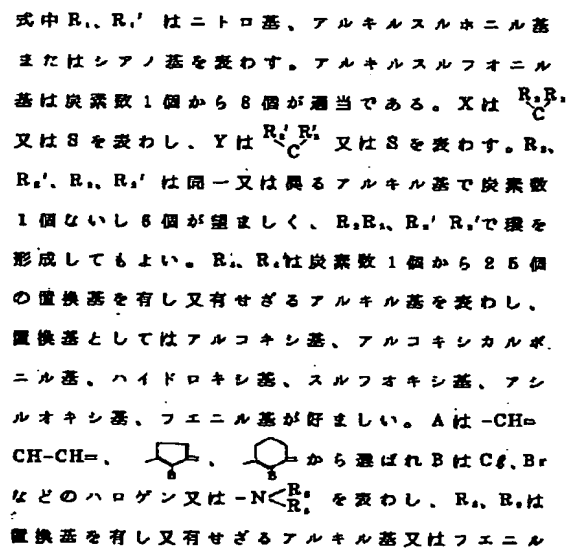 式中R₁、R₁′はニトロ基、アルキルスルホニル基
またはシアノ基を表わす。アルキルスルフォニル
基は炭素数1個から8個が適当である。Xは R₂ R₃ C
又はSを表わし、Yは R₂′ R₃′ C 又はSを表わす。R₂、
R₂′、R₃、R₃′は同一又は異るアルキル基で炭素数
1個ないし6個が望ましく、R₂R₃、R₂′R₃′で環を
形成してもよい。 は炭素数1個から25個
の置換基を有し又有せざるアルキル基を表わし、
置換基としてはアルコキシ基、アルコキシカルボ
ニル基、ハイドロキシ基、スルフオキシ基、アシ
ルオキシ基、フェニル基が好ましい。Aは-CH=
CH-CH=、 B 、 B から選ばれBはCℓ、Br
などのハロゲン又は-N< を表わし、 は
置換基を有し又有せざるアルキル基又はフェニル